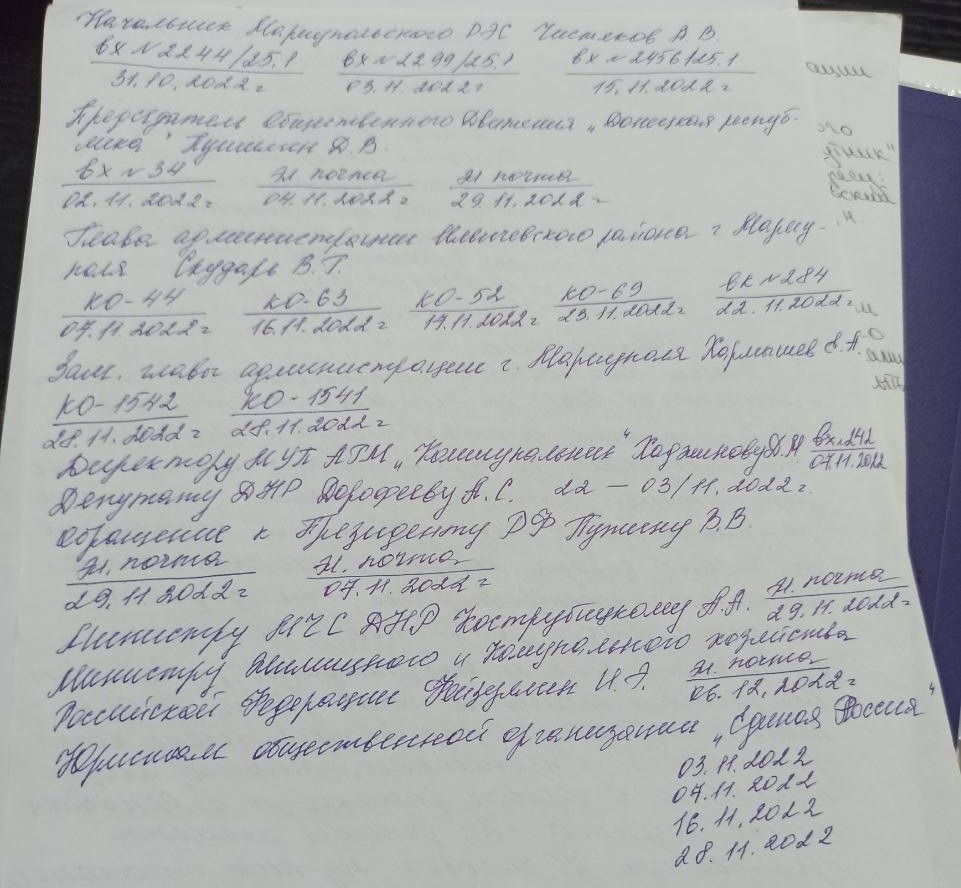 Начальник Мариупольского РЭС Чистяков А.В.
вх №2244/25.1 вх №2299/25.1 вх №2456/25.1
31.10.2022г 03.11.2022г 15.11.2022г
Председатель Общественного Движения „Донецкая респуб-
лика" Пушилин Д.В.
вх №34 эл. почта эл почта
02.11.2022г 04.11.2022г 29.11.2022г
Глава администрации Ильичевского района г. Мариу-
поля Скударь В.Г.
КО-44 КО-63 КО-52 КО-69 вх №284
07.11.2022г 16.11.2022г 17.11.2022г 23.11.2022г 22.11.2022г
Зам. главы администрации г. Мариуполя Хармышев Е.А.
КО-1542 КО-1541
28.11.2022г 28.11.2022г
Директору МУП АГМ „Коммунальник" Хаджинову Д.И вх.242
07.11.2022
Депутату ДНР Дорофееву А.С. 22 – 03/11.2022г.
Обращение к Президенту РФ Путину В.В.
эл. почта эл. почта
29.11.2022г 07.11.2022г
Министру МЧС ДНР Кострубицкому А.А. эл. почта
29.11.2022г
Министру Жилищного и Комунального хозяйства
Российской Федерации Файзуллин И.Э. эл. почта
06.12.2022г
Юристам общественной организации „Единая Россия"
03.11.2022
07.11.2022
16.11.2022
28.11.2022